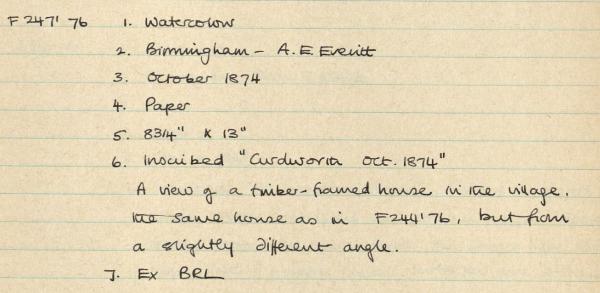 F247'76 1. Watercolour
2. Birmingham - A.E. Everitt
3. October 1874
4. Paper
5. 83/4" x 13"
6. Inscribed "Curdworth Oct. 1874"
A view of a timber-framed house in the village.
the same house as in F244'76, but from
a slightly different angle.
7. Ex BRL